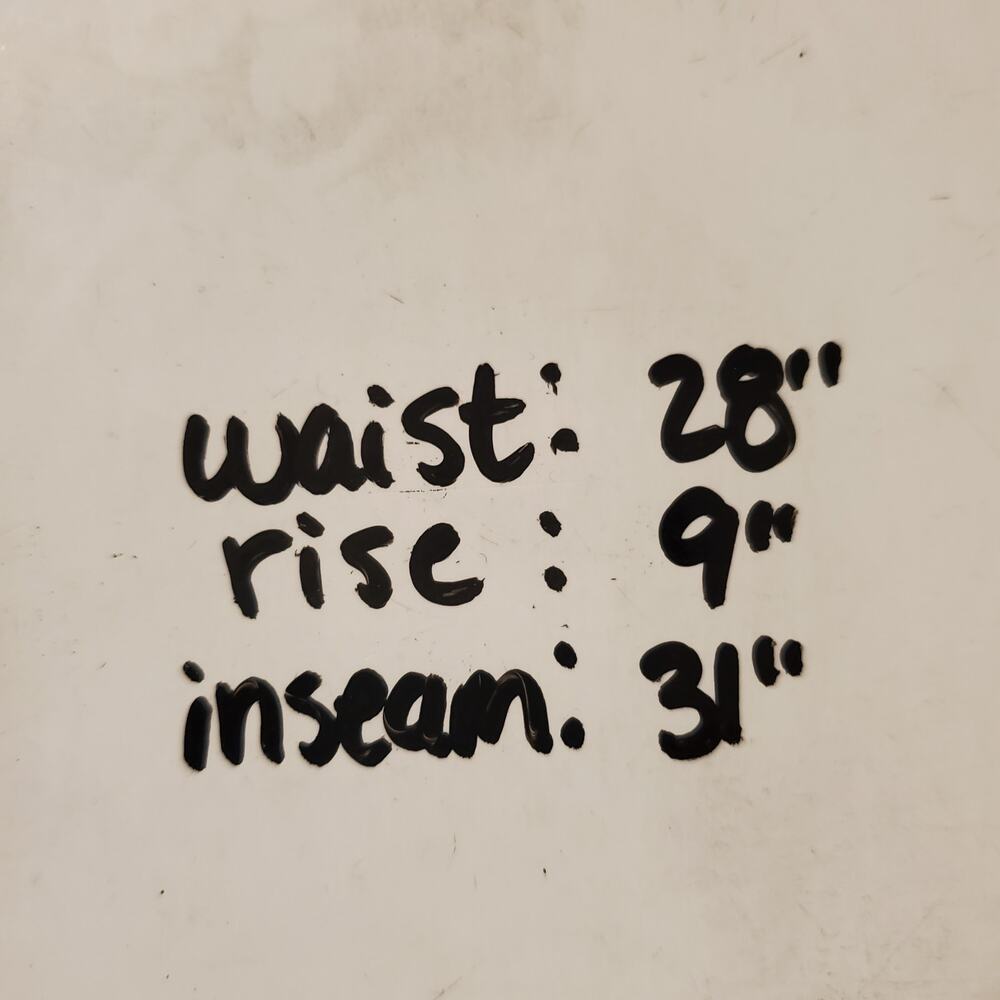 waist: 28"
rise: 9"
inseam: 31"